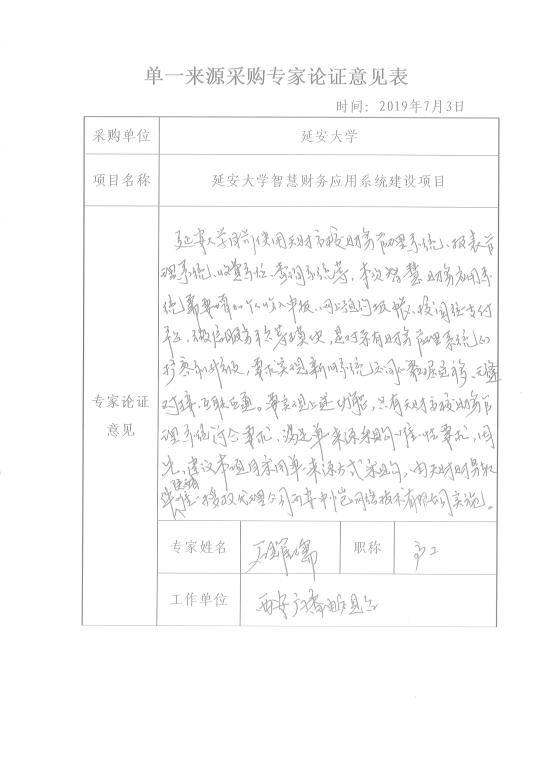 单一来源采购专家论证意见表
时间：2019年7月3日
采购单位
延安大学
项目名称
延安大学智慧财务应用系统建设项目
专家论证
意见
延安大学目前使用天财高校财务管理系统、报表管
理系统、收费系统、查询系统等，本次智慧财务应用系
统需要增加个人收入申报、网上预约报帐、校园统一支付
平台、微信服务平台等模块，是对原有财务管理系统的
扩充和升级，要求实现新旧系统之间的数据迁移、无缝
对接、互联互通。要实现上述功能，只有天财高校财务管
理系统符合要求，满足单一来源采购唯一性要求，因
此，建议本项目采用单一来源方式采购，由天财财务软
件唯一授权代理公司西安中恺网络技术有限公司实施。
专家姓名
职称
高工
工作单位
西安